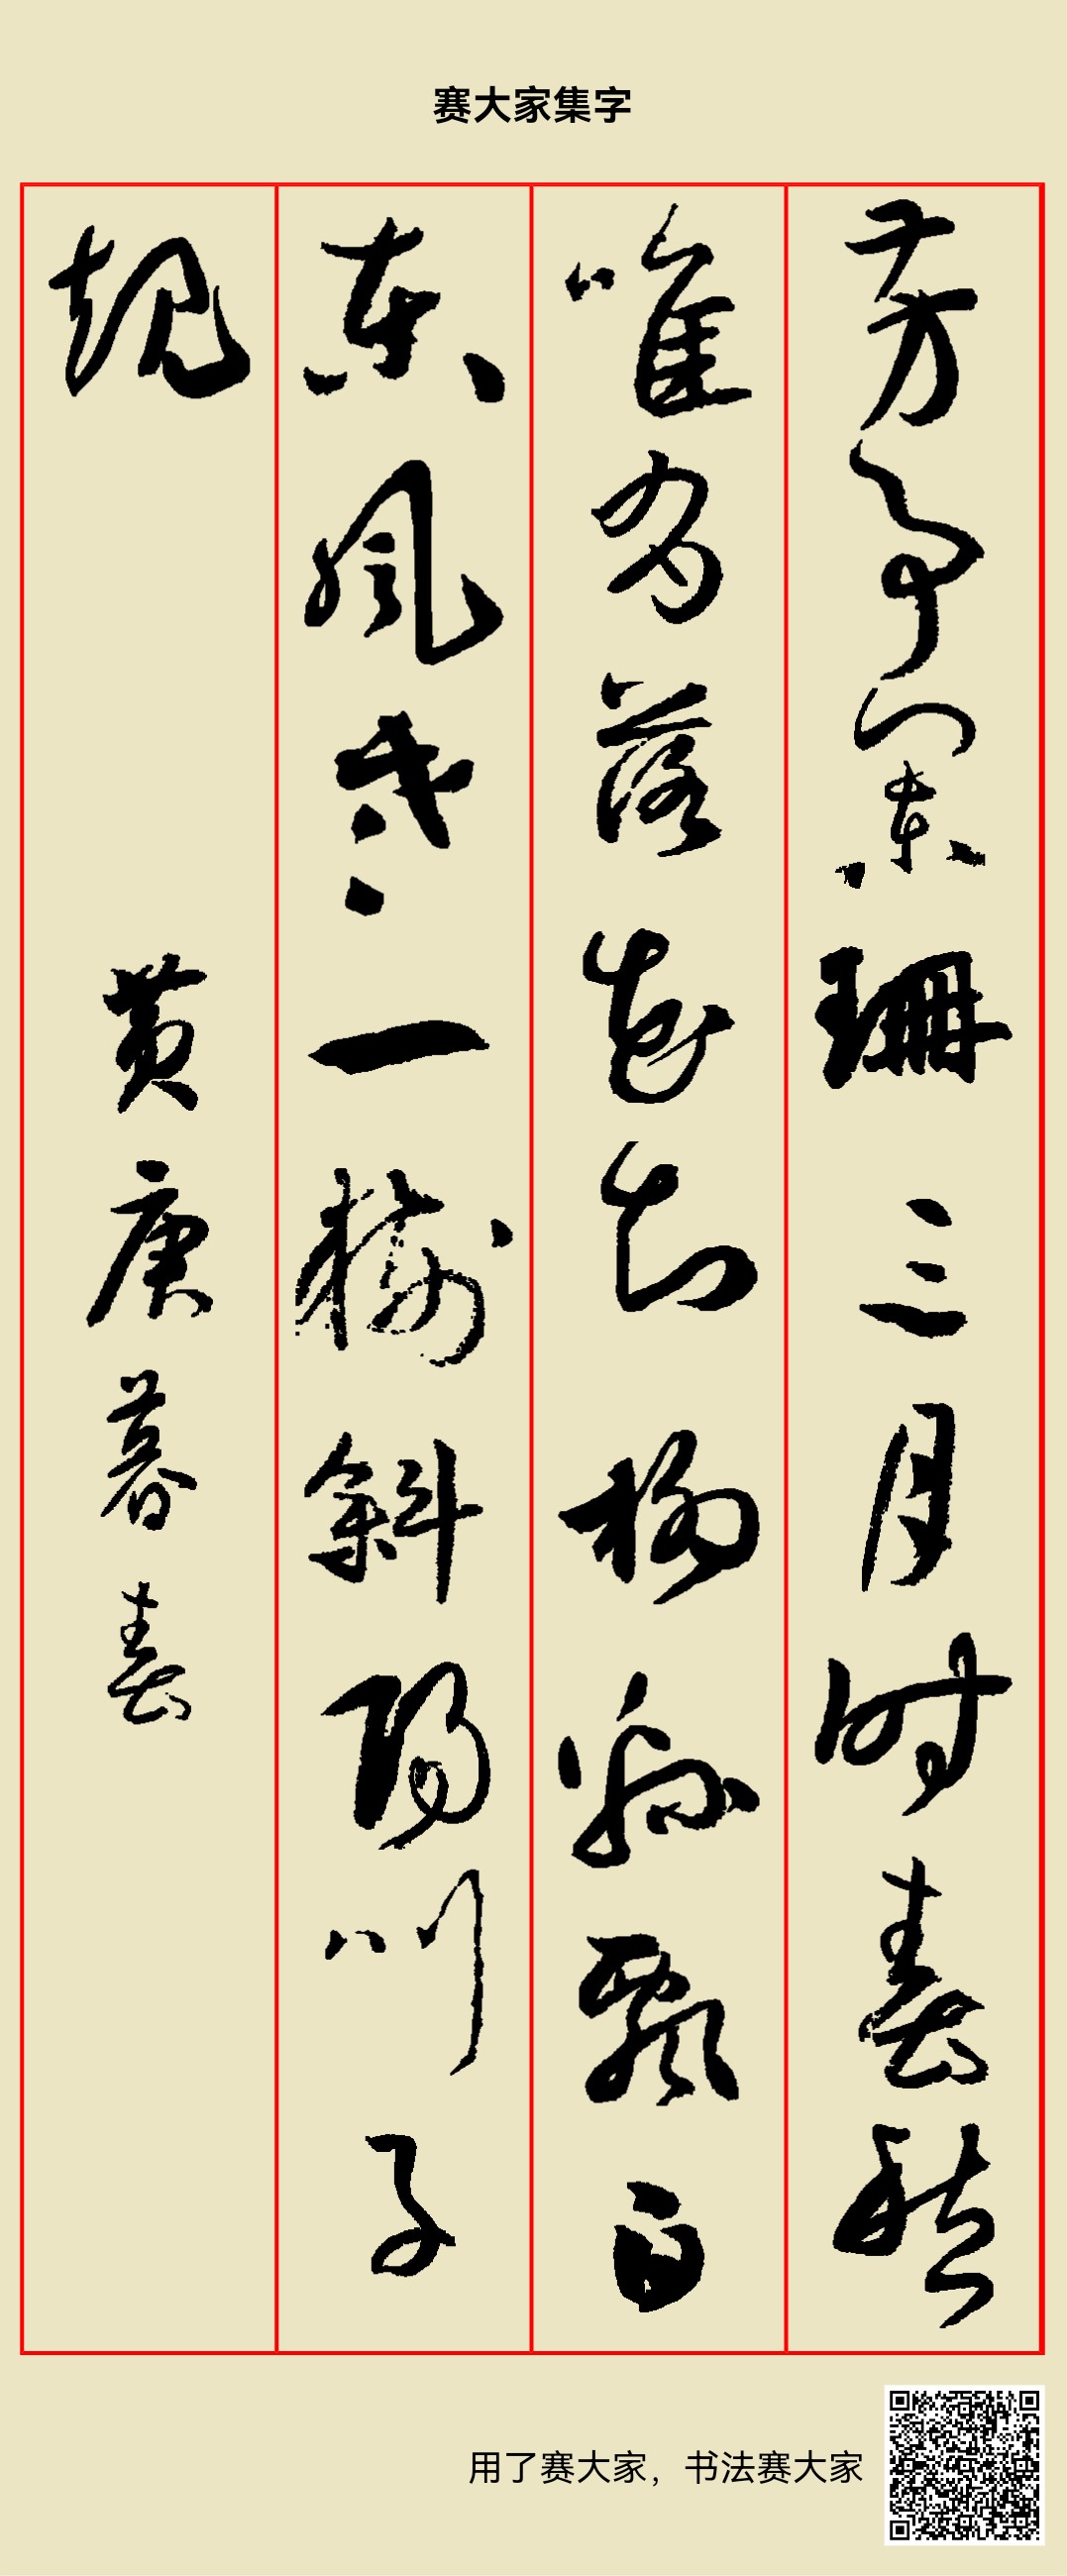 赛大家集字
芳事阑珊三月时春愁
唯有落花知柳绵飘白
东风老一树斜阳叫子
规
黄庚暮春
用了赛大家，书法赛大家